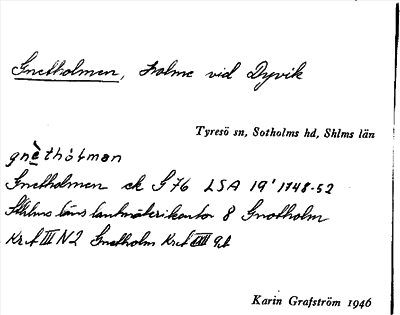 Gnetholmen, holme vid Dyvik
Tyresö sn, Sotholms hd, Shlms län
gnèthòlman
Gnetholmen ek S 76 LSA 19' 1748-52
Sthlms läns lantmäterikontor 8 Gnotholm
Kr.t III N 2 Gnetholm
Karin Grafström 1946